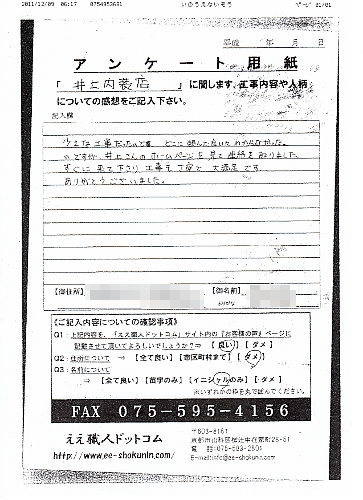 2011/12/09 06:17 0754953691 いのうえないそう ﾍﾟｰｼﾞ 01/01
平成 年 月 日
アンケート用紙
「 井上内装店 」に関します、工事内容や人柄
についての感想をご記入下さい。
記入欄
少さな工事だったんですが、どこに頼んで良いかわからなかった。
のですが、井上さんのホームページを見て連絡を取りました。
すぐに来て下さり、工事も丁寧で大満足です。
ありがとうございました。
【御住所】 【御名前】
ふりがな
《ご記入内容についての確認事項》
Q1：上記内容を、「ええ職人ドットコム」サイト内の『お客様の声』ページに
記載させて頂いてよろしいでしょうか？⇒ 【 良い 】 【 ダメ 】
Q2：住所について ⇒ 【 全て良い 】 【 市区町村まで 】 【 ダメ 】
Q3：名前について
⇒ 【 全て良い 】 【 苗字のみ 】 【 イニシャルのみ 】 【 ダメ 】
※いずれかの枠を丸で囲んでください。
FAX 075-595-4156
ええ職人ドットコム
http://www.ee-shokunin.com/
〒603-8161
電話:075-
E-mail:info@ee-shokunin.com